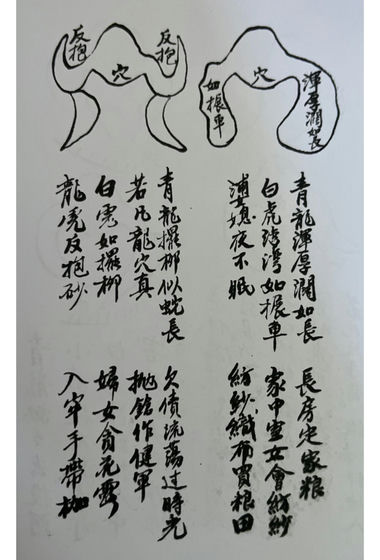 渾厚濶如長
穴
如搌車
反抱
穴
反抱
青龍渾厚濶如長
長房定家粮
白虎灣如搌車
家中室女會紡紗
媳夜不眠
紡紗織布買粮田
青龍擺柳似蛇長
欠債流蕩过時光
若凡龍穴真
拋鎗作健軍
白虎如擺柳
婦女貪花
龍虎反抱砂
入牢手帶枷